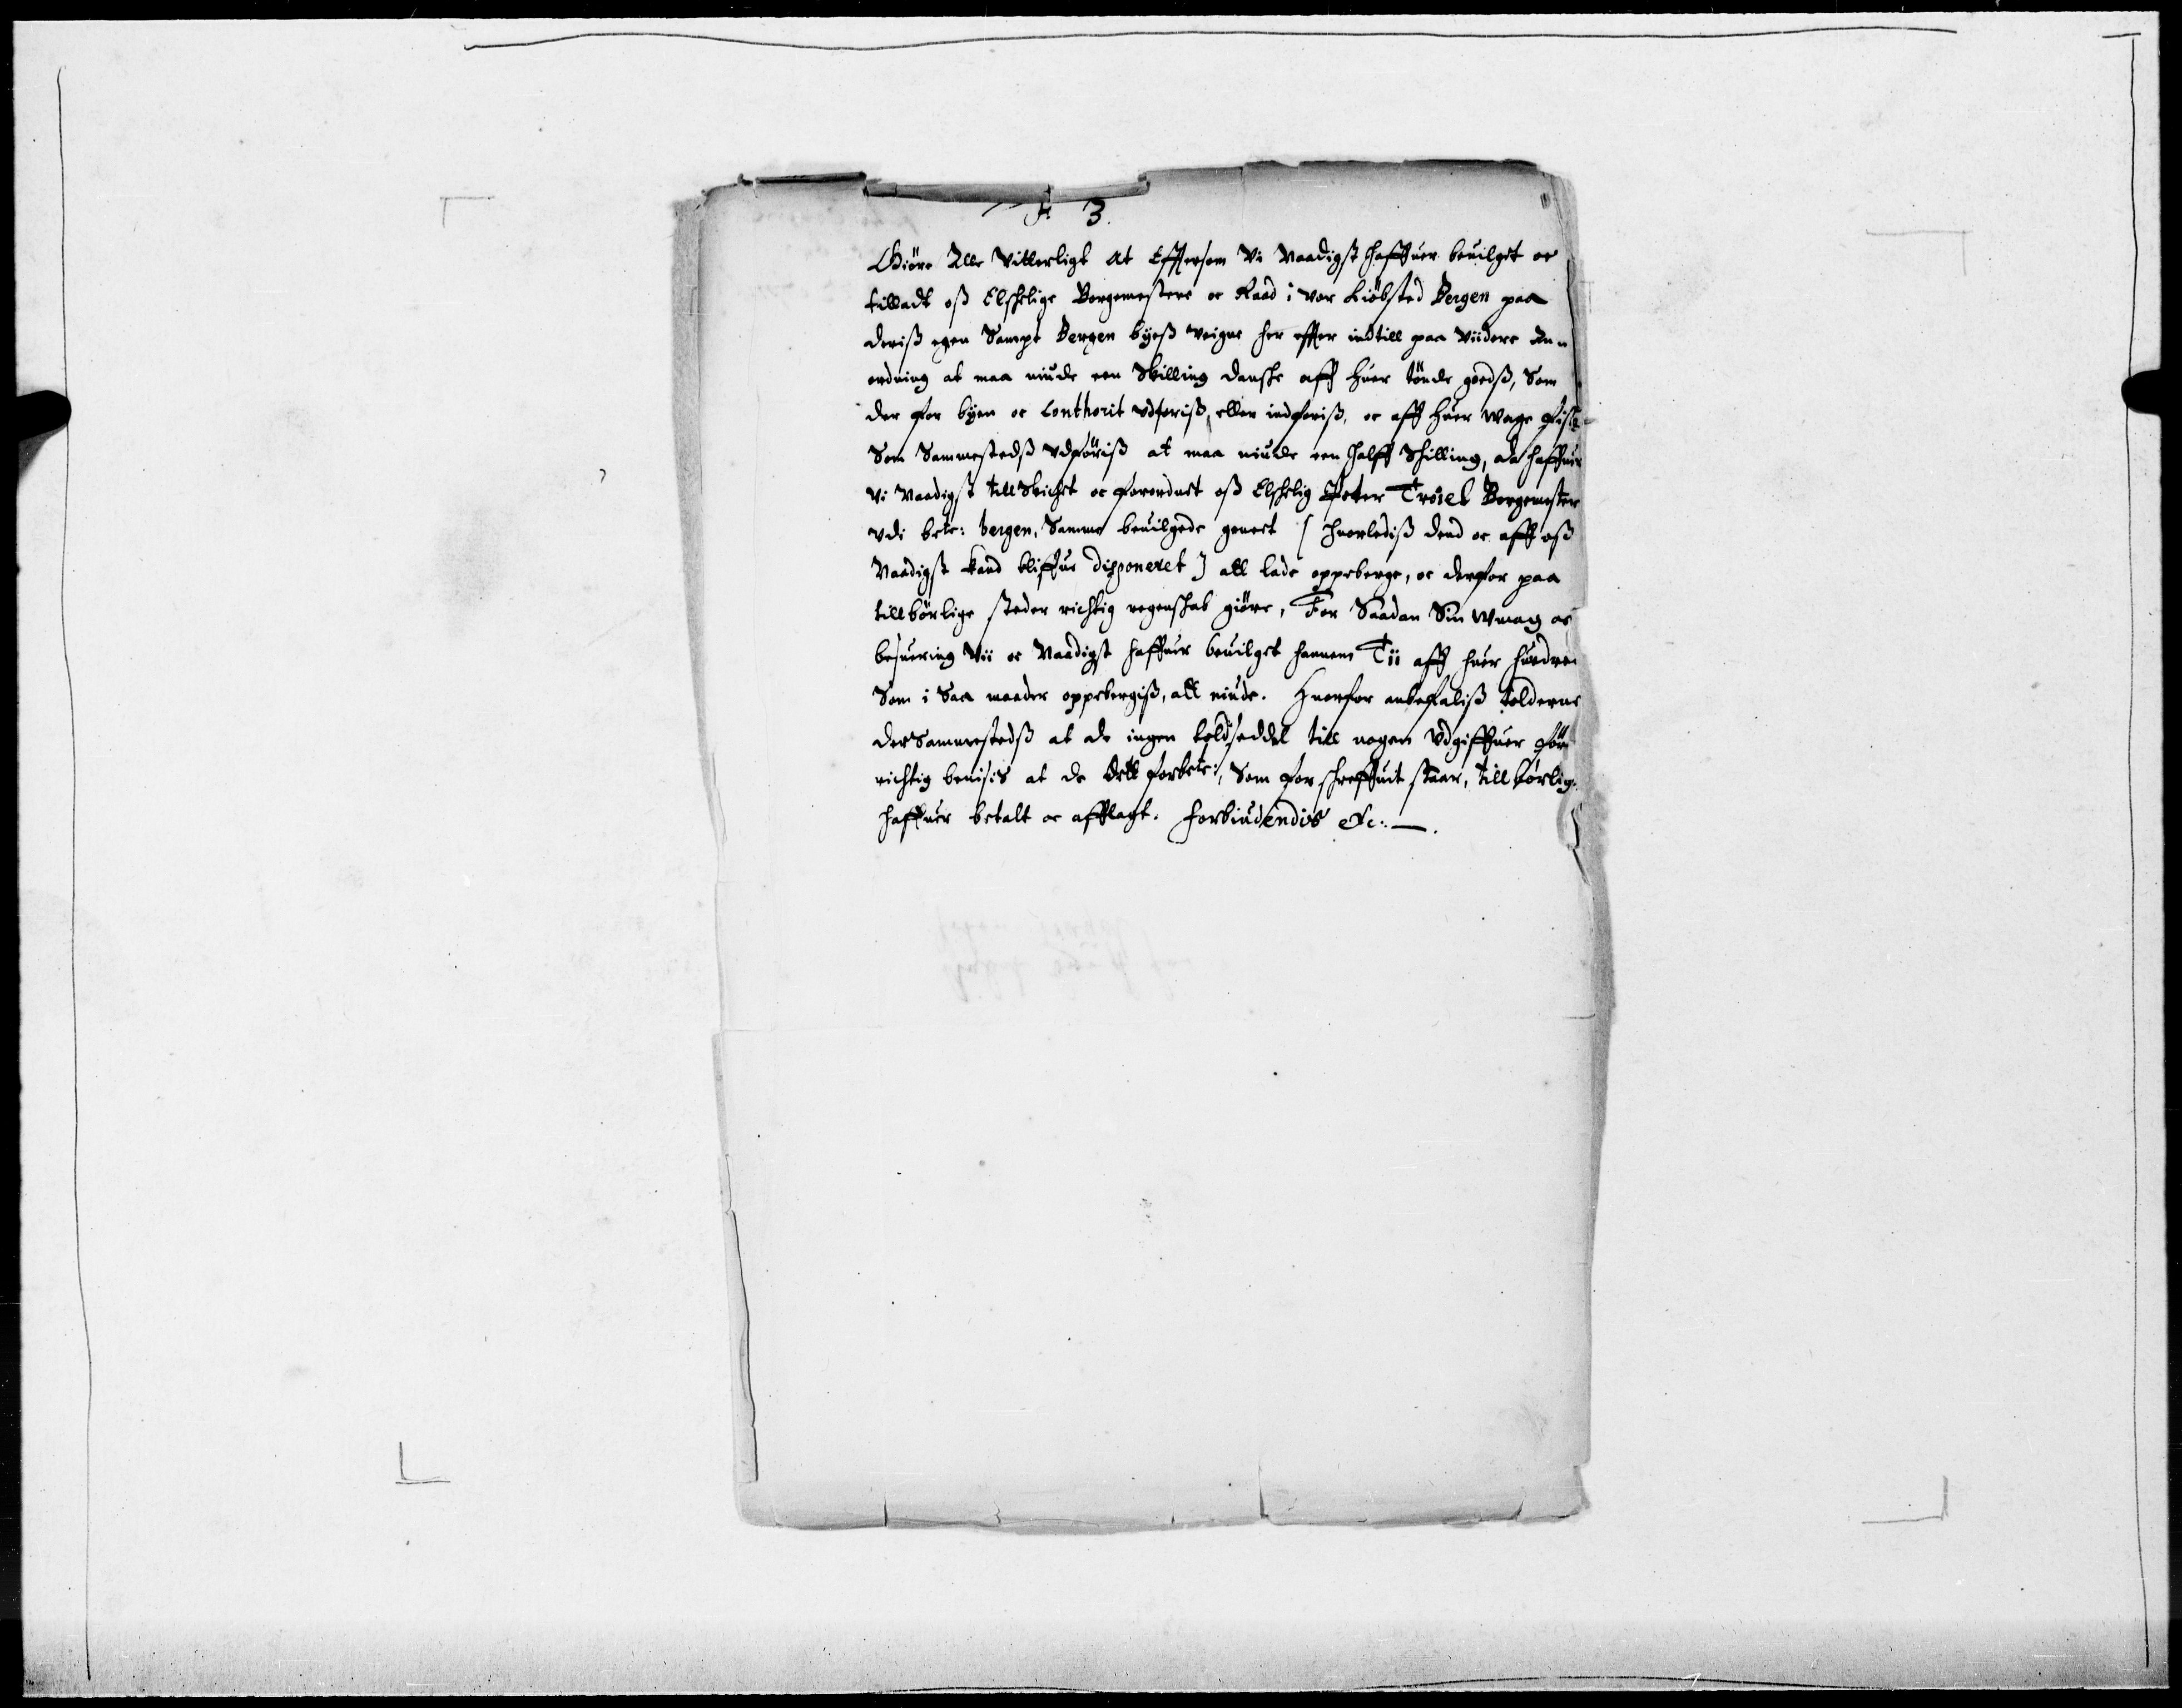 3.
Giöre Alle Vitterligt At Efftersom Vi Naadigst haffuer beuilget oc
tilladt oß Elskelige Borgemestere oc Raad i vor Kiöbsted Bergen paa
deriß egen Sampt Bergen byeß veigne her effter indtill paa Viidere An¬
ordning at maa niude een Skilling danske aff huer tönde goedß, Som
der for byen oc Conthorit vdföriß, eller indföriß, oc aff huer Woge fisk
Som Sammestedß vdföriß at maa niude een halff Skilling, da haffuer
Vi Naadigst till Skicket oc forordnet oß Elskelig Peter Troiel Borgemester
vdi bete: bergen, Samme beuilgede genert [huorlediß dend oc aff oß
Naadigst kand bliffue disponeret] att lade oppeberge, oc derfor paa
tillbörlige steder richtig regenskab giöre, For Saadan Sin Wmag oc
besuering Vii oc Naadigst haffuer beuilget hannem Tii aff huer hundrede
Som i Saa maader oppebergiß, att niude. Huorfor anbefaliß tolderne
der Sammestedß at de ingen toldseddel till nogen Vdgiffuer före
richtig beuisis at de dett forbete:, Som forskreffuit staar, tillbörlig:
haffuer betalt oc afflagt. forbiudendis etc: